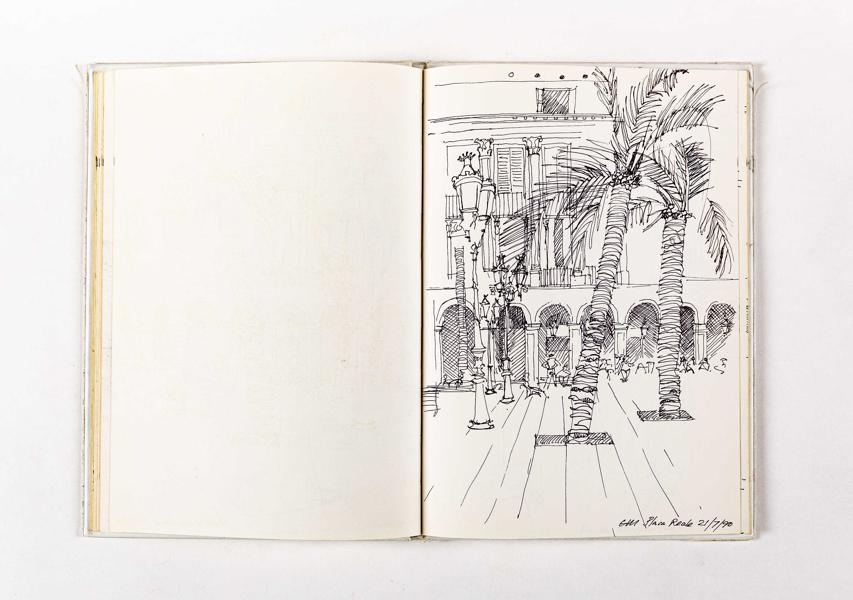 Placa Reale 21/7/90